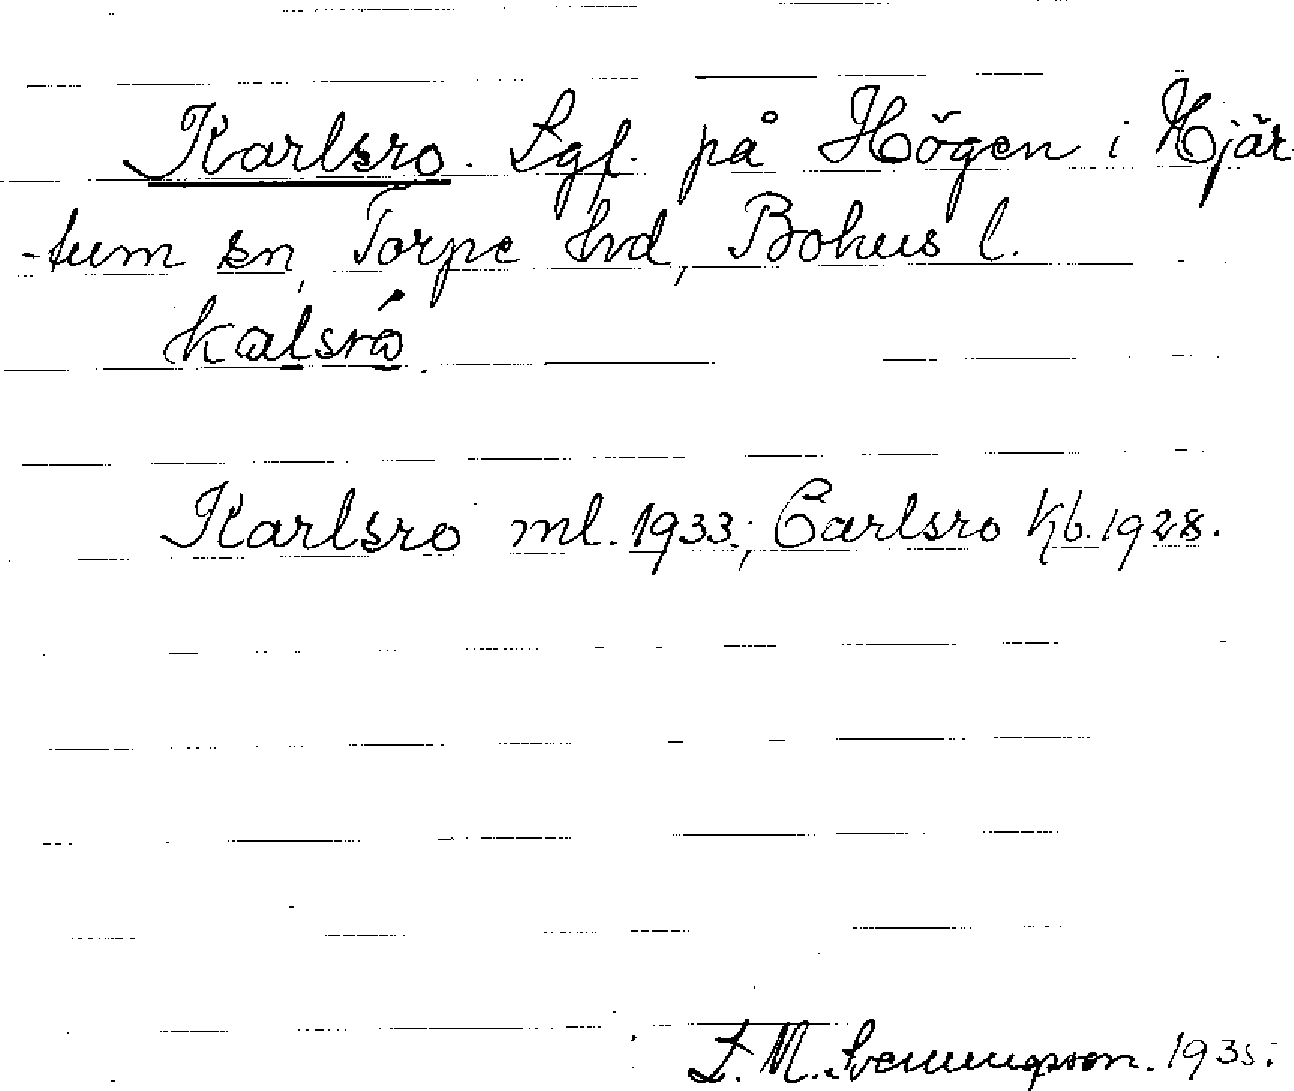 Karlsro. Lgf. på Högen i Hjär
-tum sn, Torpe hd, Bohus l.
kalsrò.
Karlsro ml. 1933.; Carlsro Kb. 1928.
L. M. Svenungsson. 1935.